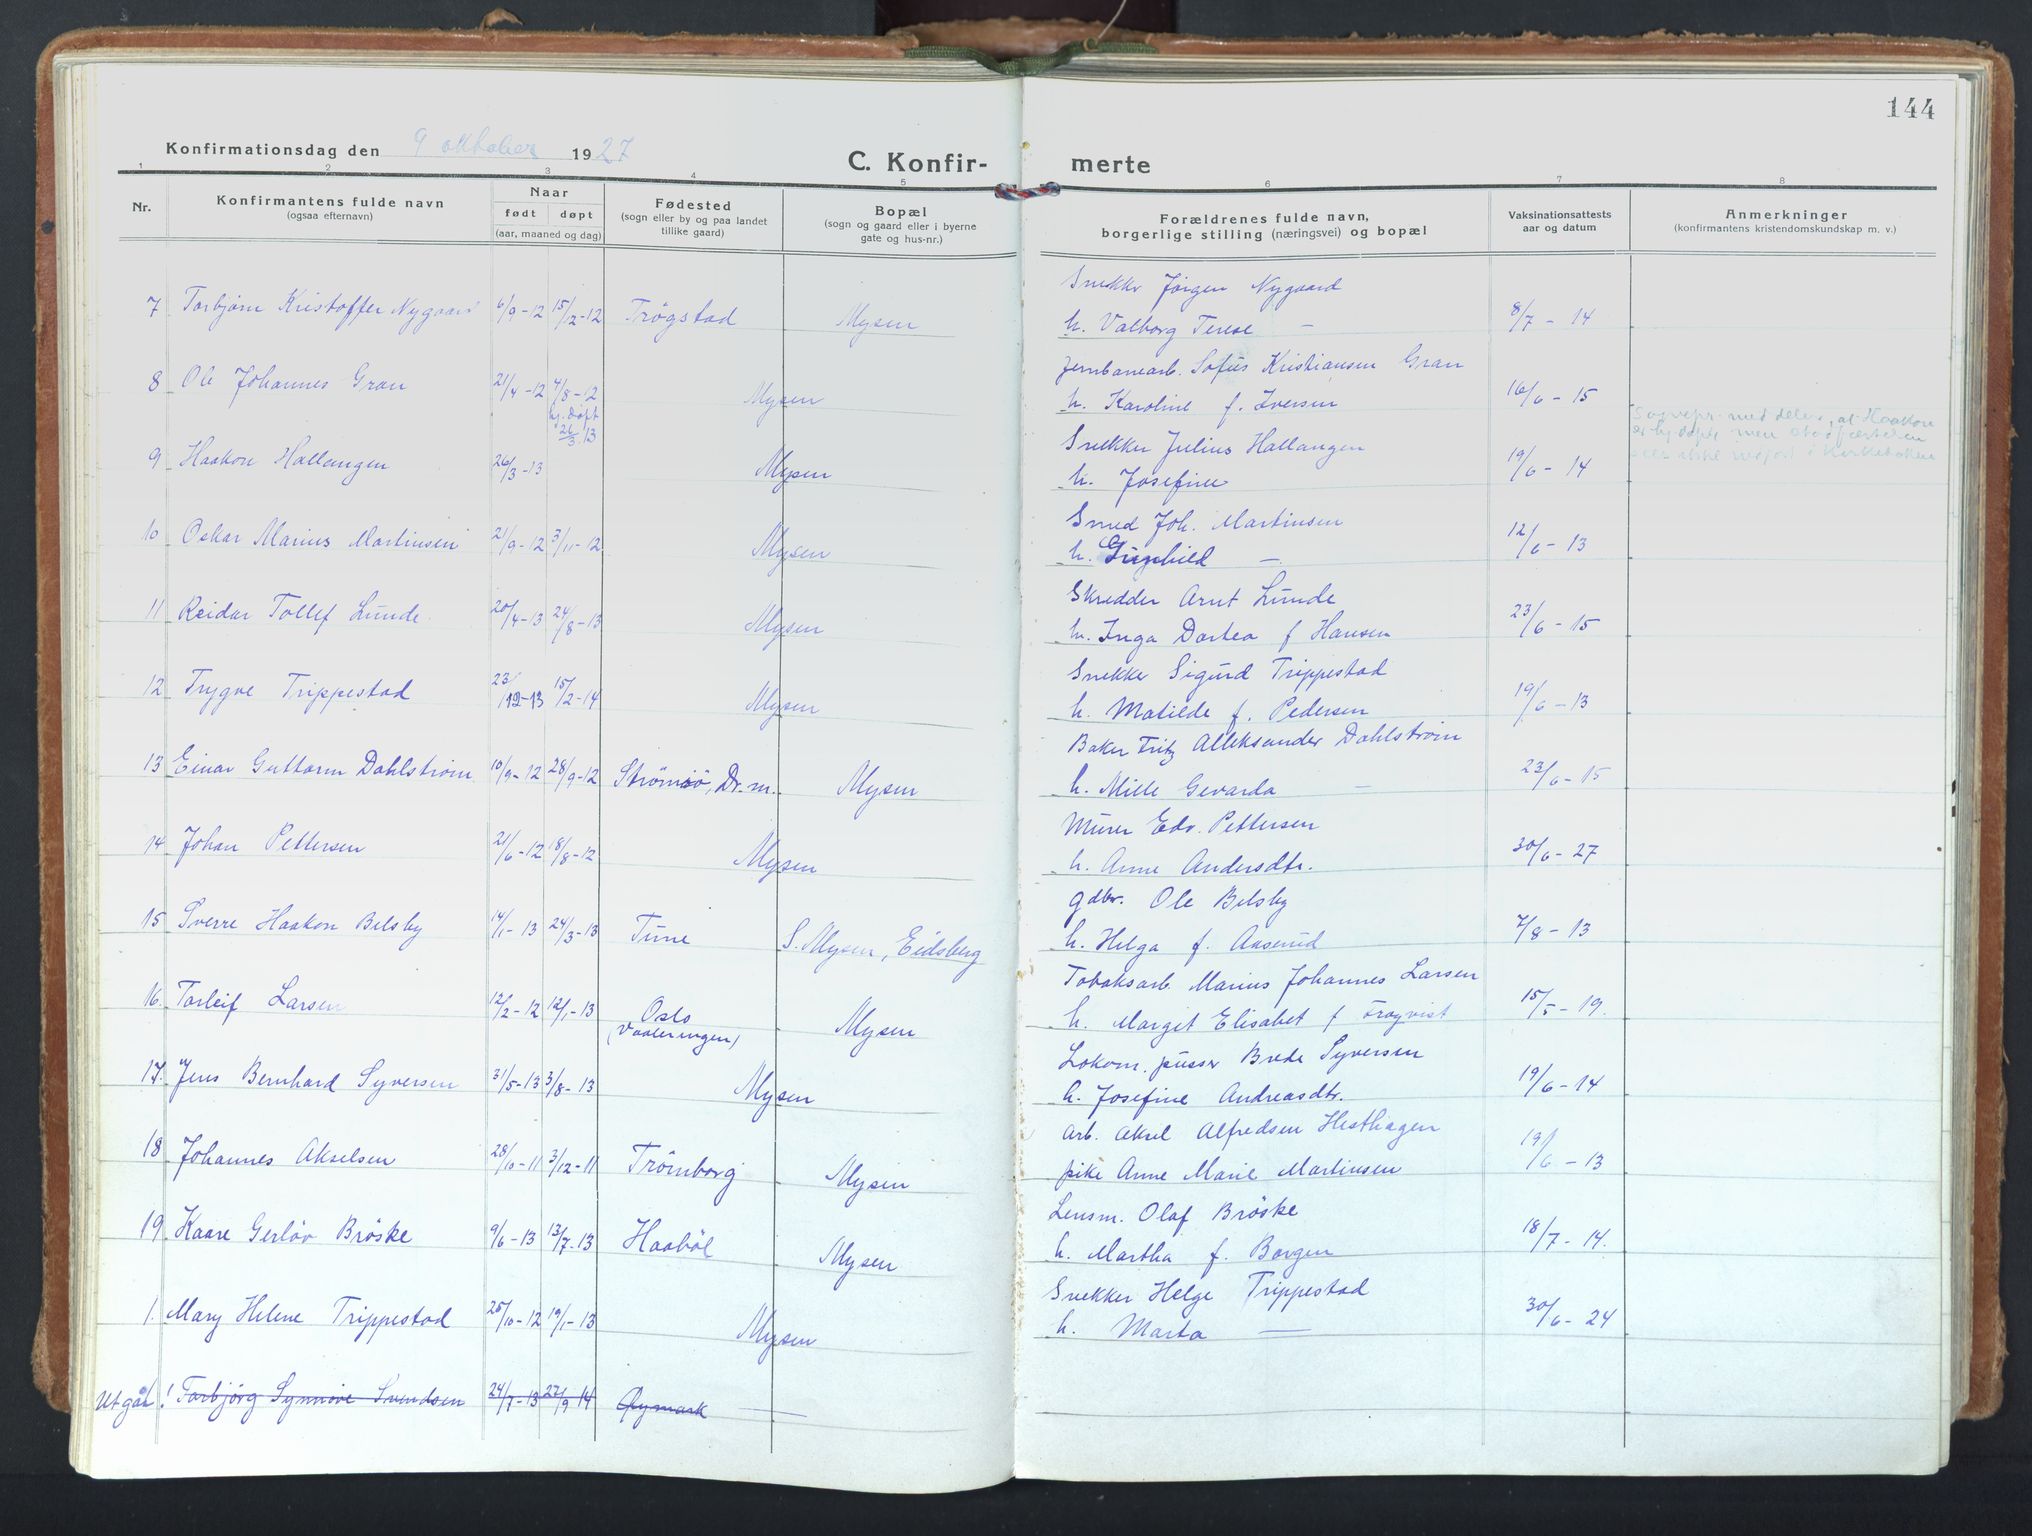 144
Konfirmationsdag den 9 oktober 1927
C. Konfir- merte
1 2 3 4 5 6 7 8
Nr.
Konfirmantens fulde navn
(ogsaa efternavn)
Naar
født døpt
(aar, maaned og dag)
Fødested
(sogn eller by og paa landet
tillike gaard)
Bopæl
(sogn og gaard eller i byerne
gate og hus-nr.)
Forældrenes fulde navn,
borgerlige stilling (næringsvei) og bopæl
Vaksinationsattests
aar og datum
Anmerkninger
(konfirmantens kristendomskundskap m. v.)
7 Torbjørn Kristoffer Nygaard 6/9-12 15/12-12 Trøgstad Mysen Snekker Jørgen Nygaard
h. Valborg Terese — 8/7 - 14
8 Ole Johannes Gran 21/4-12 4/8-12 Mysen Jernbanearb. Sofus Kristiansen Gran
h. Karoline f. Iversen 16/6 - 15
9 Haakon Hallangen 26/3-13 hj. døpt 26/3 13 Mysen Snekker Julius Hallangen
h. Josefine 19/6 - 14
Sognepr. meddeler, at Haakon
er hj. døpt men
ikke indført i Kirkeboken
10 Oskar Marius Martinsen 21/9-12 3/11-12 Mysen Smed Joh. Martinsen
h. Gunhild — 12/6 - 13
11 Reidar Tollef Lunde 20/4-13 24/8-13 Mysen Skredder Arnt Lunde
h. Inga Dortea f Hansen 23/6 - 15
12 Trygve Trippestad 23/12-13 15/2-14 Mysen Snekker Sigurd Trippestad
h. Matilde f. Pedersen 19/6 - 13
13 Einar Guttorm Dahlstrøm 10/9-12 28/9-12 Strømsø, Dr.m. Mysen Baker Fritz Alleksander Dahlstrøm
h. Mille Gevarda — 23/6 - 15
14 Johan Pettersen 21/6-12 18/8-12 Mysen Murer Edv. Pettersen
h. Anne Andersdtr. 30/6 - 27
15 Sverre Haakon Bilsby 14/1-13 24/3-13 Tune S. Mysen, Eidsberg gdbr. Ole Bilsby
h. Helga f. Aaserud 7/8 - 13
16 Torleif Larsen 12/2-12 12/1-13 Oslo
(Vaaleringen) Mysen Tobaksarb. Marius Johannes Larsen
h. Margit Elisabet f 15/5 - 19.
17. Jens Bernhard Syversen 31/5-13 3/8-13 Mysen Lokom. pusser Brede Syversen
h. Josefine Andreasdtr. 19/6 - 14
18 Johannes Akselsen 28/10-11 3/12-11 Trømborg Mysen Arb. Aksel Alfredsen Hesthagen
pike Anne Marie Martinsen 19/6 - 13
19 Kaare Gerløv Brøske 9/6-13 13/7-13 Haabøl Mysen Lensm. Olaf Brøske
h. Martha f. Borgen 18/7 - 14.
1. Mary Helene Trippestad 25/10-12 19/1-13 Mysen Snekker Helge Trippestad
h. Marta — 30/6 - 24
Utgåt! Torbjørg Synnøve Svendsen 24/7-13 27/9 14 Øymark —